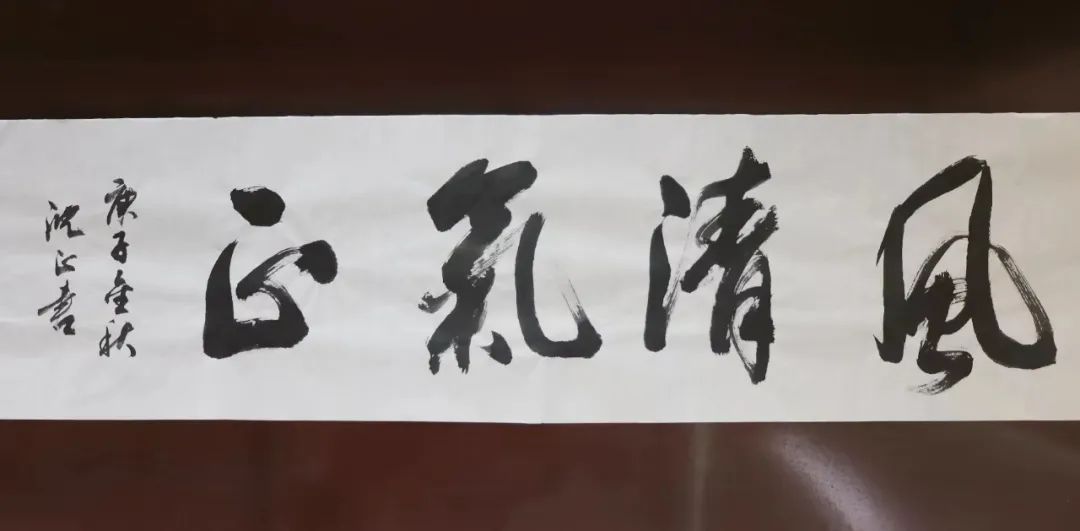 風清氣正
庚子金秋
沈正喜